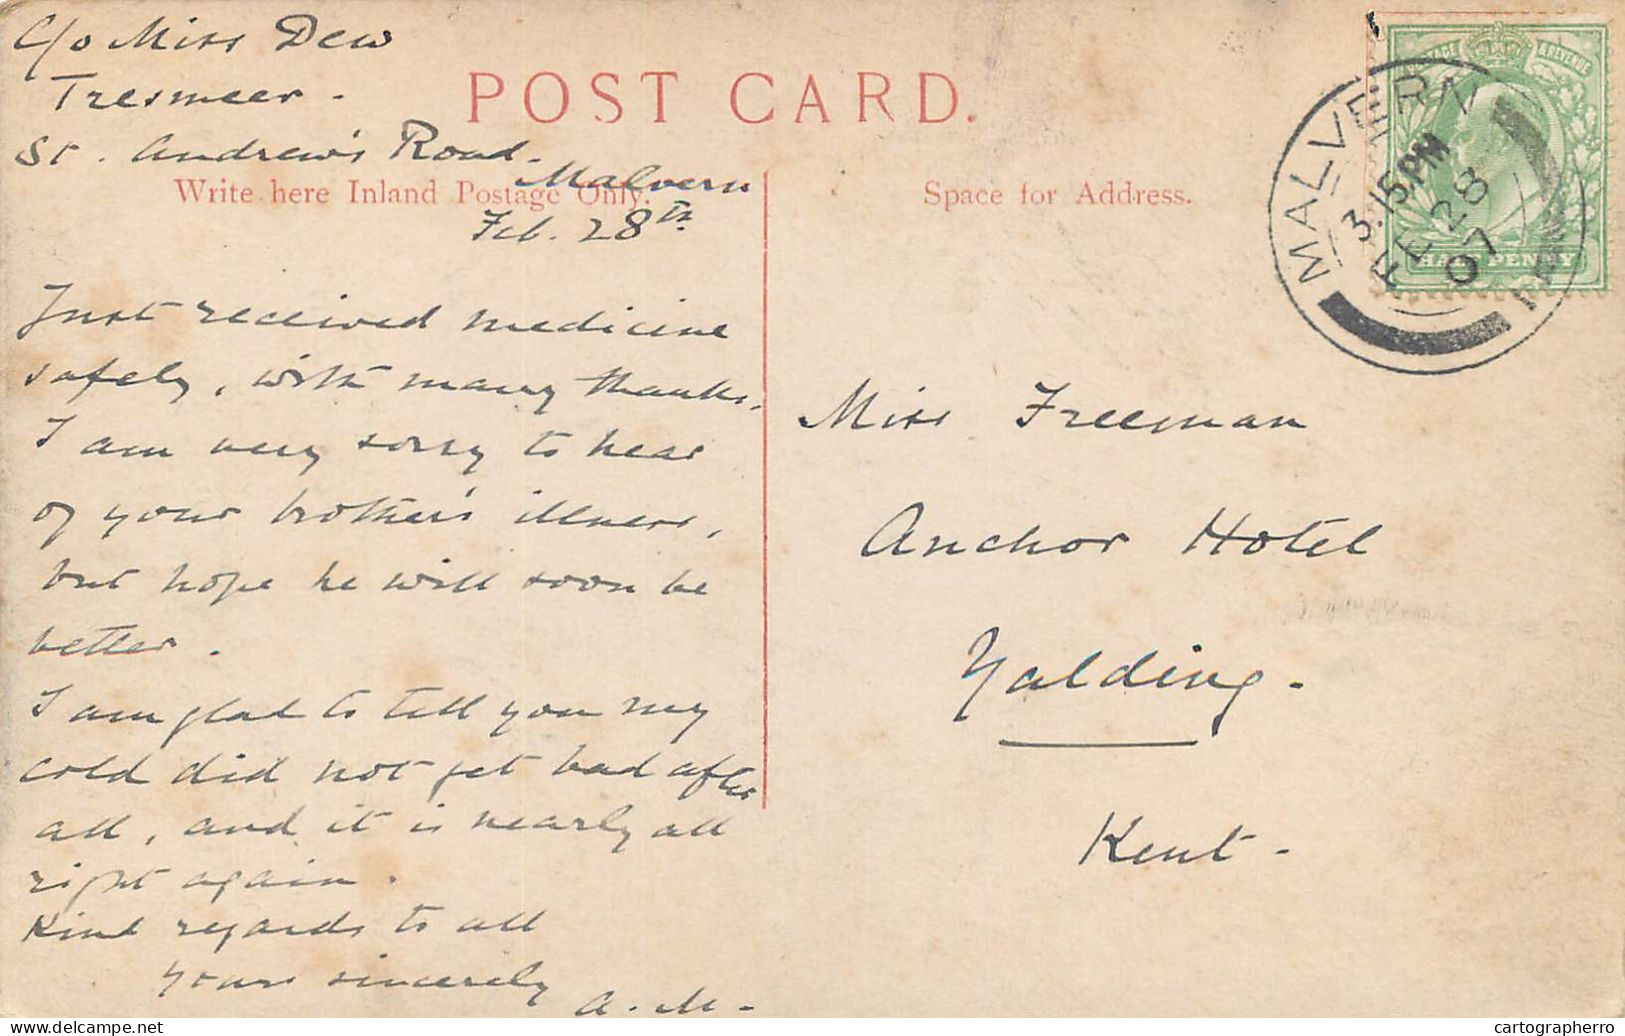 C/o Miss Dew
Tresmeer -
St. Andrew's Road -
Malvern
Feb. 28th
POST CARD.
Write here Inland Postage Only.
Space for Address.
Just received medicine
safely, with many thanks.
I am very sorry to hear
of your brother's illness,
but hope he will soon be
better.
I am glad to tell you my
cold did not get bad after
all, and it is nearly all
right again.
Kind regards to all
yours sincerely
A. M -
POSTAGE & REVENUE
HALF PENNY
MALVERN
3.15 PM
FE 28
07
Miss Freeman
Anchor Hotel
Yalding -
Kent -
delcampe.net
cartographerro